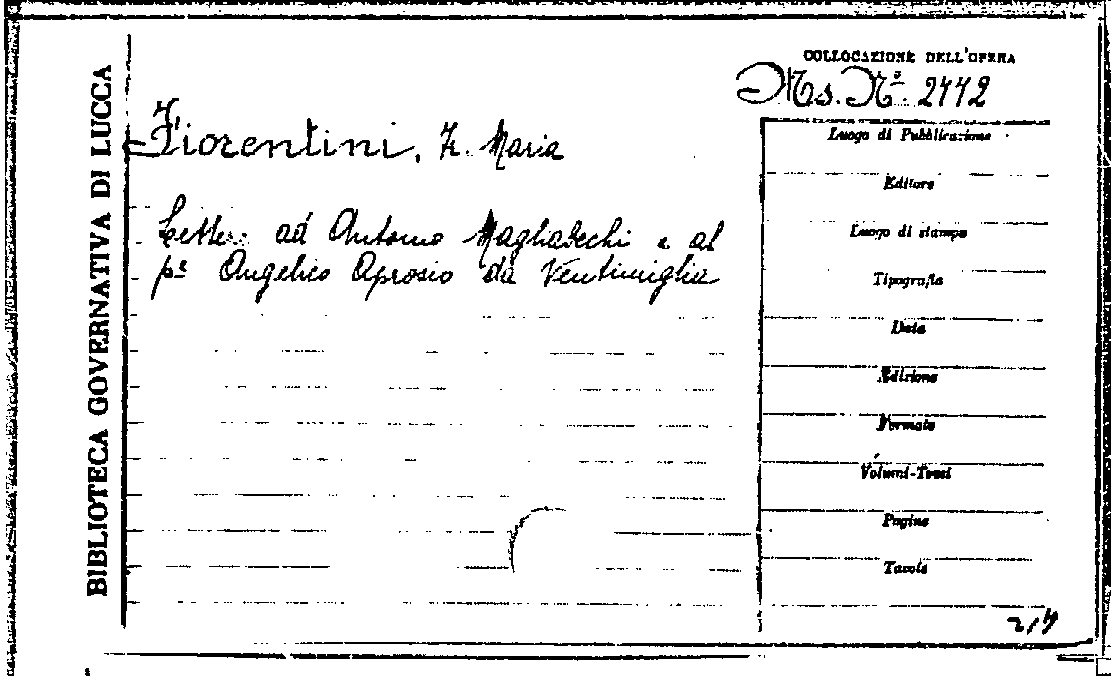 BIBLIOTECA GOVERNATIVA DI LUCCA
COLLOCAZIONE DELL'OPERA
Ms. N.º 2442
Fiorentini, F. Maria
Lettere ad Antonio Magliabechi e al
p.e Angelico Aprosio da Ventimiglia
Luogo di Pubblicazione
Editore
Luogo di stampa
Tipografia
Data
Edizione
Formato
Volumi-Tomi
Pagine
Tavole